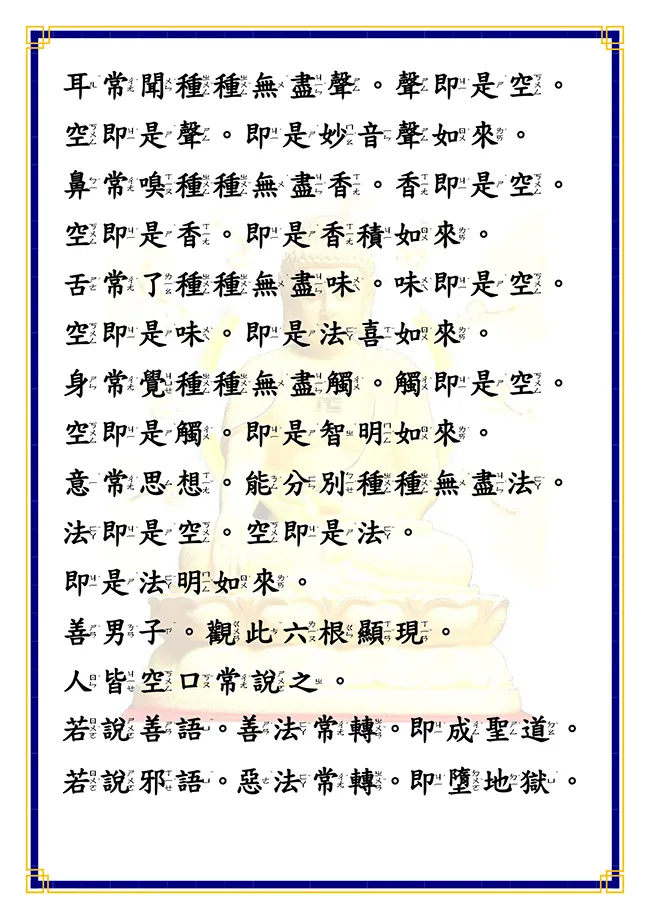 耳常聞種種無盡聲。聲即是空。
空即是聲。即是妙音聲如來。
鼻常嗅種種無盡香。香即是空。
空即是香。即是香積如來。
舌常了種種無盡味。味即是空。
空即是味。即是法喜如來。
身常覺種種無盡觸。觸即是空。
空即是觸。即是智明如來。
意常思想。能分別種種無盡法。
法即是空。空即是法。
即是法明如來。
善男子。觀此六根顯現。
人皆空口常說之。
若說善語。善法常轉。即成聖道。
若說邪語。惡法常轉。即墮地獄。